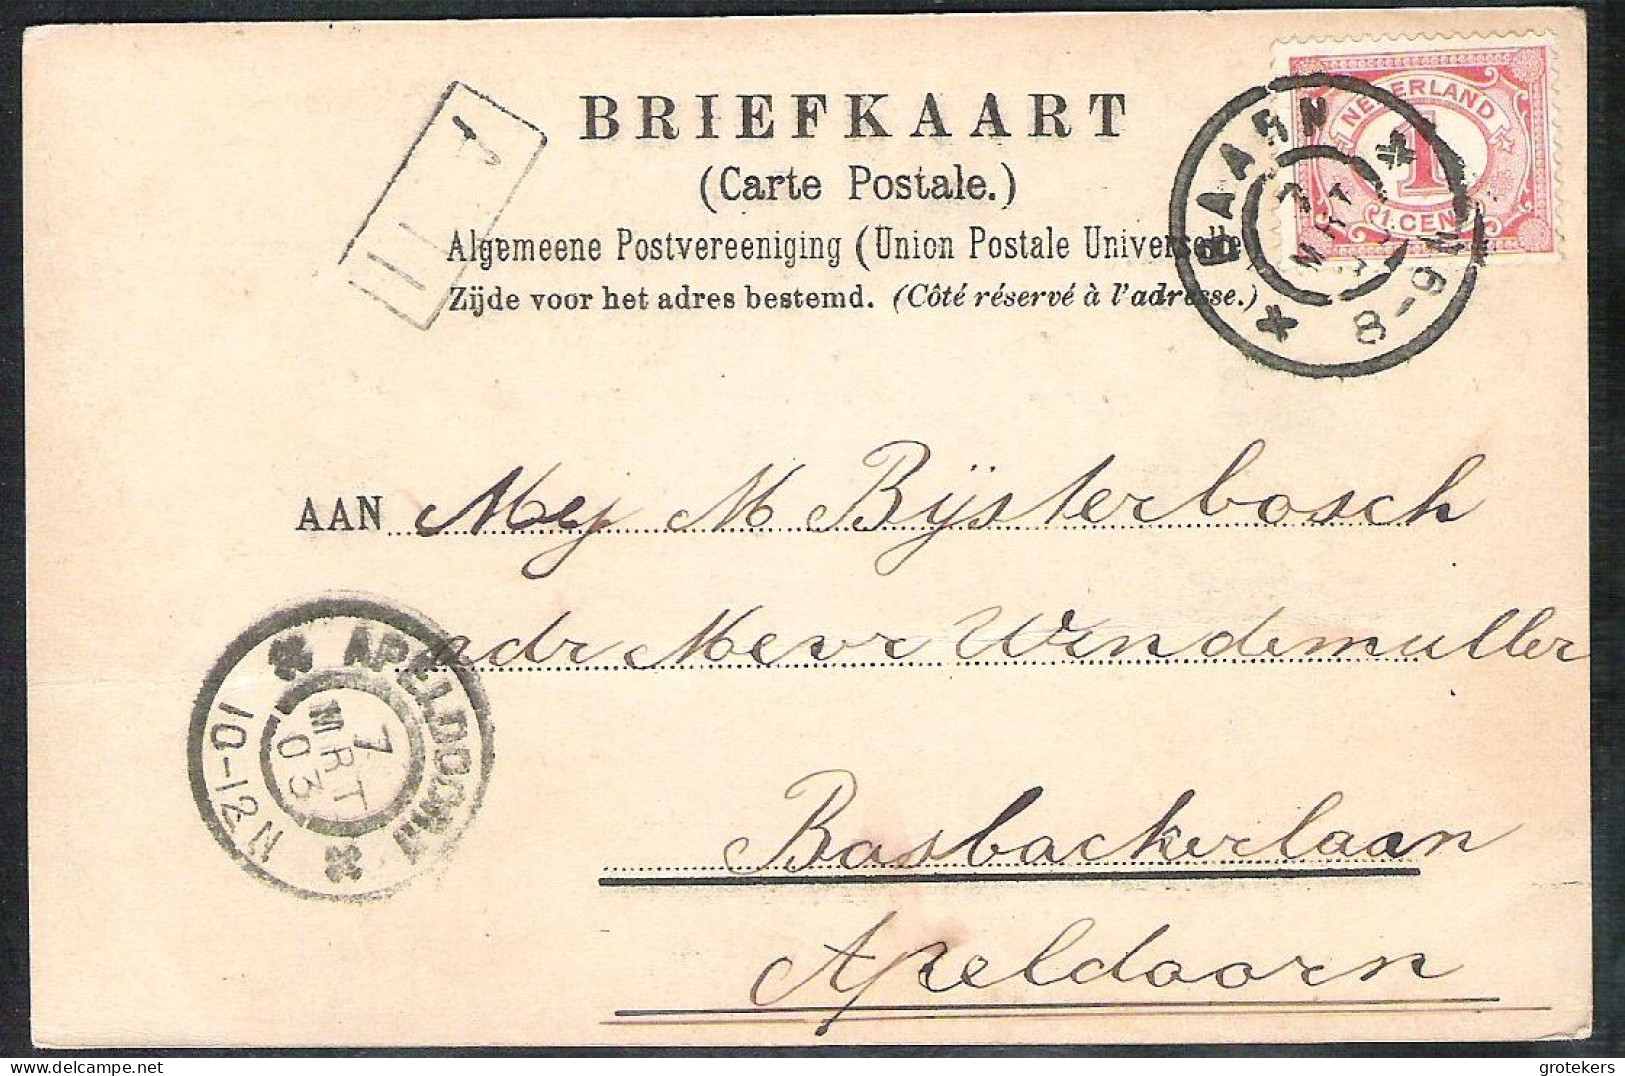 BRIEFKAART
(Carte Postale.)
Algemeene Postvereeniging (Union Postale Universelle)
Zijde voor het adres bestemd. (Côté réservé à l'adresse.)
NEDERLAND
1
1.CENT
BAARN
7 MRT 03
8-9N
AAN Mej M Bijsterbosch
adr Mevr Windemuller
Basbackerlaan
Apeldoorn
APELDOORN
7 MRT 03
10-12N
© grotekers